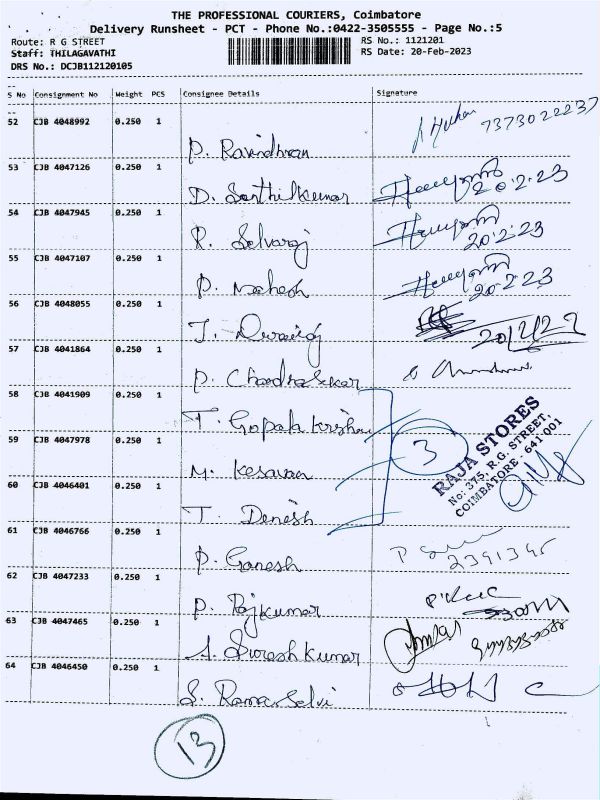 THE PROFESSIONAL COURIERS, Coimbatore
Delivery Runsheet - PCT - Phone No.:0422-3505555 - Page No.:5
Route: R G STREET
RS No.: 1121201
Staff: THILAGAVATHI
RS Date: 20-Feb-2023
DRS No.: DCJB112120105
S No Consignment No Weight PCS Consignee Details Signature
52 CJB 4048992 0.250 1
7373022237
P. Ravindhran
53 CJB 4047126 0.250 1
D. Senthilkumar 20-2-23
54 CJB 4047945 0.250 1
R. Selvaraj 20.2.23
55 CJB 4047107 0.250 1
P. Mahesh 20-2-23
56 CJB 4048055 0.250 1
J. Durairaj
57 CJB 4041864 0.250 1
P. Chandrasekar
58 CJB 4041909 0.250 1
T. Gopalakrishnan
59 CJB 4047978 0.250 1
3
RAJA STORES
No: 375, R.G. STREET,
COIMBATORE - 641 001
M. Kesavan
60 CJB 4046401 0.250 1
T. Denesh
61 CJB 4046766 0.250 1
P. Ganesh
2391345
62 CJB 4047233 0.250 1
P. Rajkumar
63 CJB 4047465 0.250 1
A. Suresh Kumar
64 CJB 4046450 0.250 1
S. Rama Selvi
13